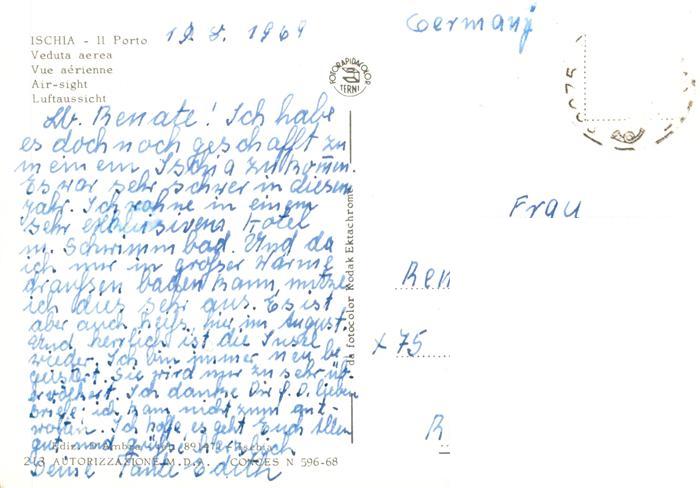 19. 8. 1969
Germany
ISCHIA - Il Porto
Veduta aerea
Vue aérienne
Air-sight
Luftaussicht
FOTORAPIDACOLOR
TERNI
Lb. Renate! Ich habe
es doch noch geschafft zu
meinem Ischia zu komm.
Es war sehr schwer in diesem
Jahr. Ich wohne in einem
sehr exklusivens Hotel
m. Schwimmbad. Und da
ich nur in großer Wärme
draußen baden kann, nütze
ich dies sehr aus. Es ist
aber auch heiß hier im August.
Und herrlich ist die Insel
wieder. Ich bin immer neu be-
geistert. Sie wird nur zu sehr üb-
ervölkert. Ich danke Dir f. D. lieben
Briefe. ich kam nicht zum Ant-
worten. Ich hoffe es geht Euch Allen
gut und grüße herzlich
Deine Tante Edith
243 AUTORIZZAZIONE M.D.A. CONCES N 596-68
da fotocolor Kodak Ektachrome
Frau
Ren
x 75
R